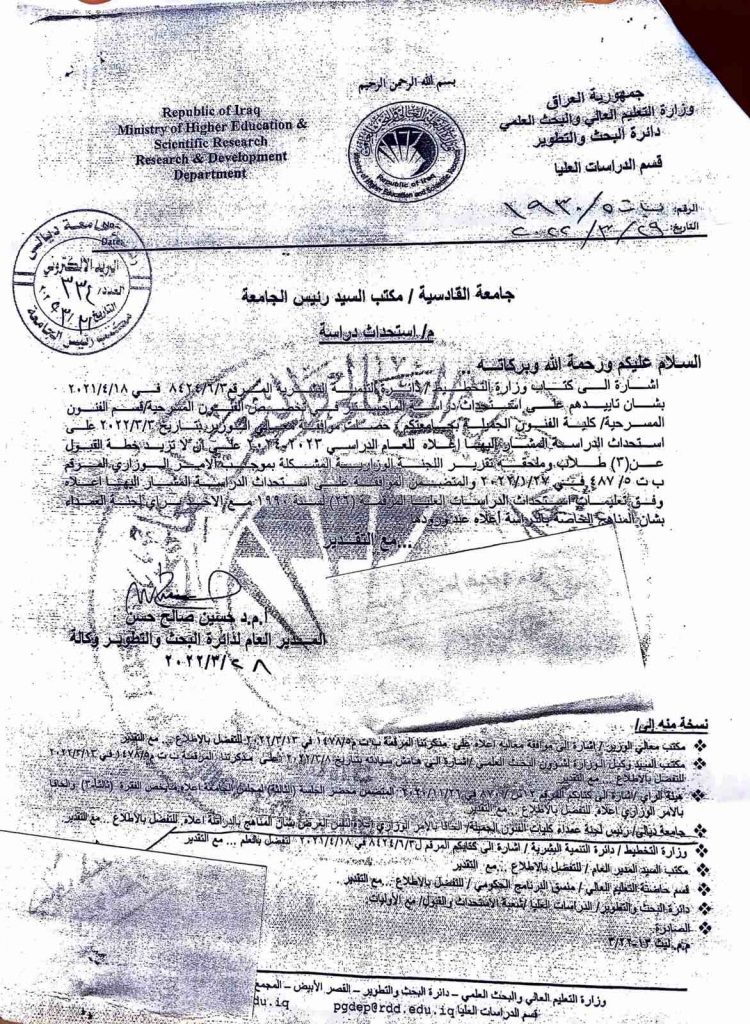 بسم الله الرحمن الرحيم
Republic of Iraq
Ministry of Higher Education &
Scientific Research
Research & Development
Department
جمهورية العراق
وزارة التعليم العالي والبحث العلمي
دائرة البحث والتطوير
قسم الدراسات العليا
الرقم: ب ت ٥/ ١٩٣٠
التاريخ: ٢٠٢٢/٣/٢٩
جامعة ديالى
البريد الالكتروني
العدد/ ٣٣٤
التاريخ
مكتب رئيس الجامعة
جامعة القادسية / مكتب السيد رئيس الجامعة
م/ استحداث دراسة
السلام عليكم ورحمة الله وبركاته ..
اشارة الى كتاب وزارة التخطيط / دائرة التنمية البشرية المرقم ٨٤٢٤/٦/٣ في ٢٠٢١/٤/١٨
بشان تاييدهم على استحداث دراسة الماجستير في تخصص الفنون المسرحية/قسم الفنون
المسرحية/ كلية الفنون الجميلة بجامعتكم، حصلت موافقة معالي الوزير بتاريخ ٢٠٢٢/٣/٣ على
استحداث الدراسة المشار اليها إعلاه للعام الدراسي ٢٠٢٣-٢٠٢٤ على ان لا تزيد خطة القبول
عن(٣) طلاب وملحقه تقرير اللجنة الوزارية المشكلة بموجب الامر الوزاري المرقم
ب ت ٥/ ٤٨٧ في ٢٠٢٢/١/٢٧ والمتضمن الموافقة على استحداث الدراسة المشار اليها اعلاه
وفق تعليمات استحداث الدراسات العليا المرقمة (٢٦) لسنة ١٩٩٠ مع الاخذ براي لجنة العمداء
بشان المناهج الخاصة بالدراسة أعلاه عند ورودها
...مع التقدير
أ.م.د حسين صالح حسن
المدير العام لدائرة البحث والتطوير وكالة
٢٠٢٢/٣/٢٨
نسخة منه إلى/
مكتب معالي الوزير / اشارة الى موافقة معاليه اعلاه على مذكرتنا المرقمة ب ت م٥/ ١٤٧٨ في ٢٠٢٢/٣/١٣ للتفضل بالاطلاع ... مع التقدير
مكتب السيد وكيل الوزارة لشؤون البحث العلمي / اشارة الى هامش سيادته بتاريخ ٢٠٢٢/٣/٨ على مذكرتنا المرقمة ب ت م٥/ ١٤٧٨ في ٢٠٢٢/٣/١٣
للتفضل بالاطلاع ... مع التقدير
هيئة الراي / اشارة الى كتابكم المرقم في ٢٠٢١/١١/٢٦ المتضمن محضر الجلسة (الثالثة) لمجلس الجامعة
بالامر الوزاري اعلاه للتفضل بالاطلاع ... مع التقدير
جامعة ديالى/ رئيس لجنة عمداء كليات الفنون الجميلة/ الحاقا بالامر الوزاري اعلاه لغرض بشان المناهج بالدراسة اعلاه للتفضل بالاطلاع ... مع التقدير
وزارة التخطيط / دائرة التنمية البشرية / اشارة الى كتابكم المرقم ٨٤٢٤/٦/٣ في ٢٠٢١/٤/١٨ للتفضل بالعلم ... مع التقدير
مكتب السيد المدير العام / للتفضل بالاطلاع ... مع التقدير
قسم حاضنة التعليم العالي / منسق البرنامج الحكومي / للتفضل بالاطلاع ...مع التقدير
دائرة البحث والتطوير/ الدراسات العليا /شعبة الاستحداث والقبول/ مع الأوليات.
الصادرة
وزارة التعليم العالي والبحث العلمي – دائرة البحث والتطوير – القصر الأبيض – المجمع
قسم الدراسات العليا pgdep@rdd.edu.iq
du.iq